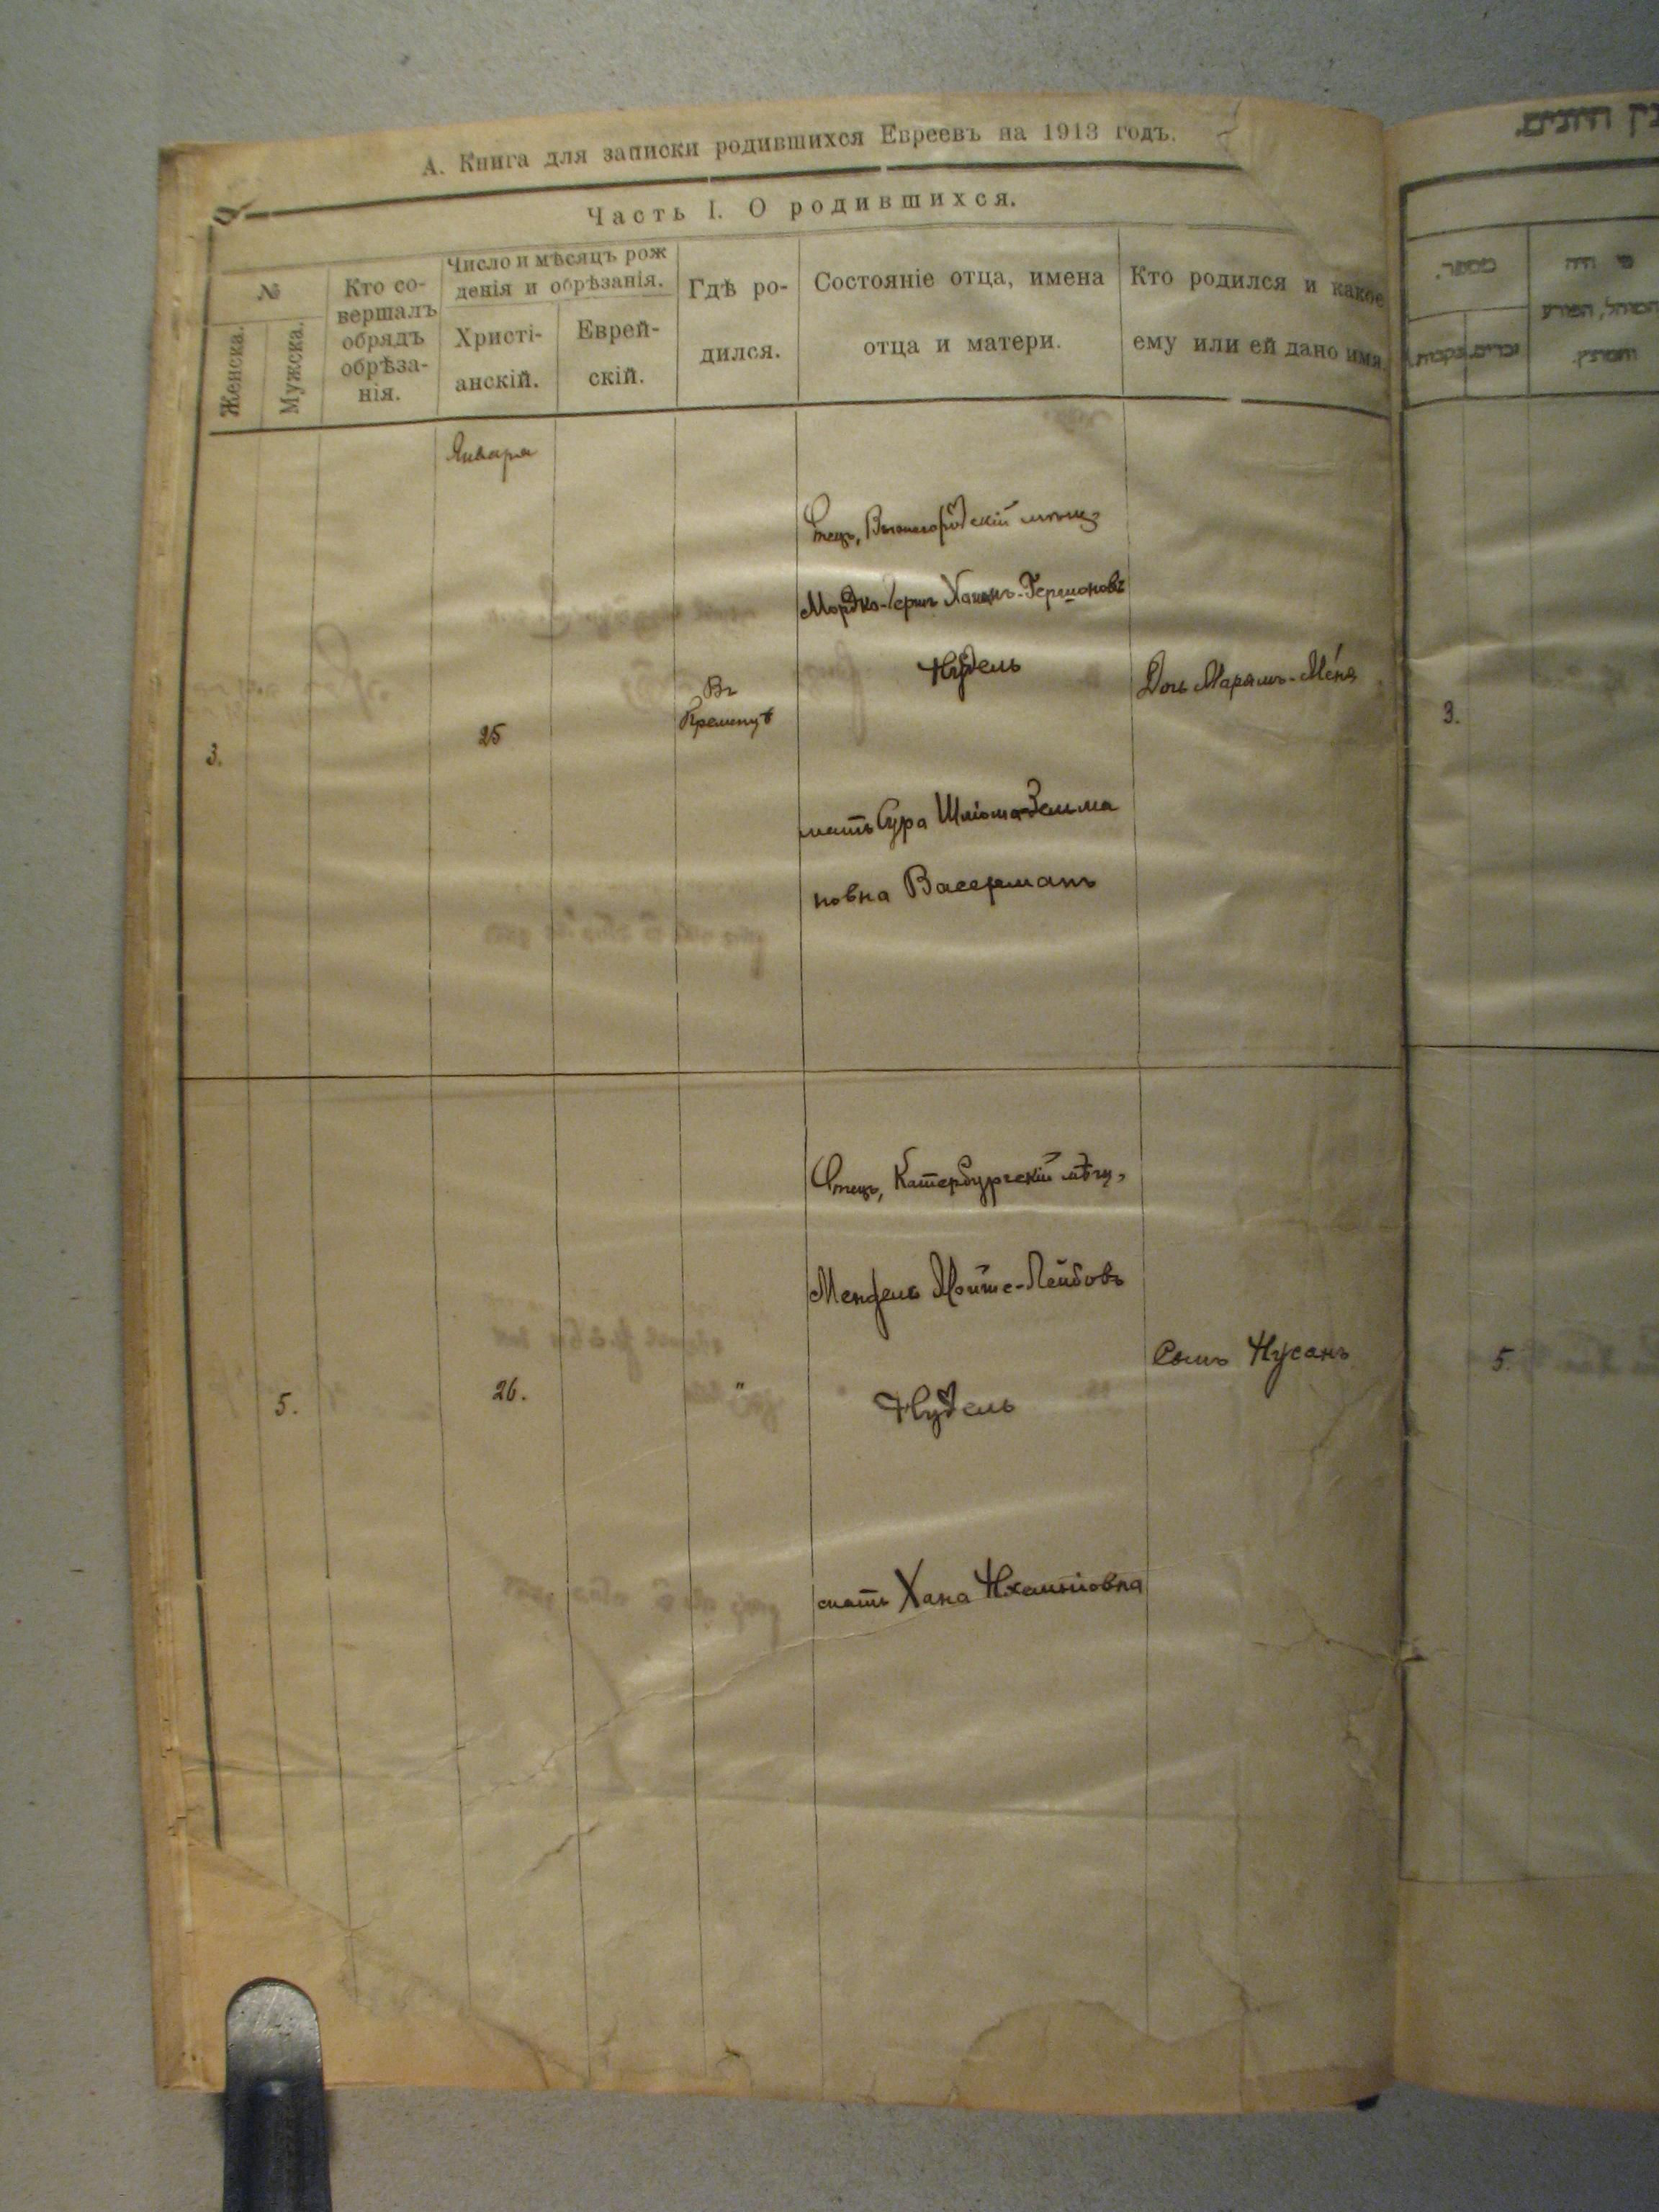 А. Книга для записки родившихся Евреевъ на 1913 годъ.
Часть I. О родившихся.
№
Женска.
Мужска.
Кто со-
вершалъ
обрядъ
обрѣза-
нія.
Число и мѣсяцъ рож
денія и обрѣзанія.
Христі-
анскій.
Еврей-
скій.
Гдѣ ро-
дился.
Состояніе отца, имена
отца и матери.
Кто родился и какое
ему или ей дано имя.
Января
3.
25
Въ
Кременцѣ
Отецъ, Вышегородскій мѣщ.
Мордко-Герш Хаимъ-Гершоновъ
Нудель
мать Сура Шліома-Зельма
новна Васерманъ
Дочь Марямъ-Меня
3.
5.
26.
"
Отецъ, Катербургскій мѣщ.
Мендель Мойше-Лейбовъ
Нудель
мать Хана
Сынъ Нусанъ
5.